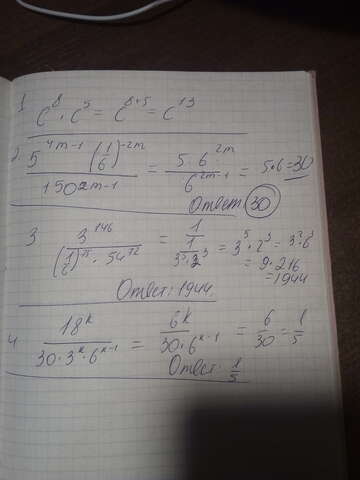 1 c⁸ · c⁵ = c⁸⁺⁵ = c¹³
2. 5^(4m-1) (1/6)^(-2m) / 150^(2m-1) = 5·6^(2m) / 6^(2m-1) = 5·6=30
Ответ 30
3 3^146 / = 1 / = 3⁵·2³ = 3²·6³
= 9·216
= 1944
Ответ: 1944.
4 18^k / 30·3^k·6^(k-1) = 6^k / 30·6^(k-1) = 6/30 = 1/5
Ответ. 1/5